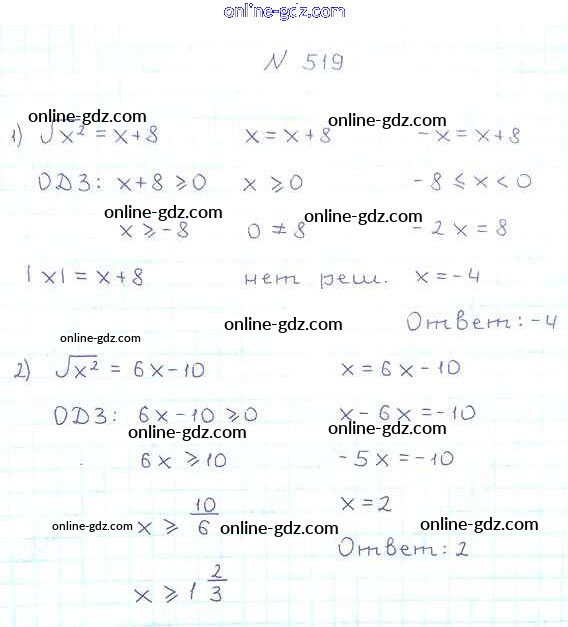 online-gdz.com
N 519
online-gdz.com online-gdz.com
1) √x² = x+8 x = x+8 -x = x+8
ОДЗ: x+8 ⩾ 0 x ⩾ 0 -8 ⩽ x < 0
online-gdz.com online-gdz.com
x ⩾ -8 0 ≠ 8 -2x = 8
|x| = x+8 нет реш. x = -4
online-gdz.com Ответ: -4
online-gdz.com
2) √x² = 6x-10 x = 6x-10
ОДЗ: 6x-10 ⩾ 0 x-6x = -10
online-gdz.com online-gdz.com
6x ⩾ 10 -5x = -10
x = 2
online-gdz.com x ⩾ 10/6 online-gdz.com online-gdz.com
Ответ: 2
x ⩾ 1 2/3